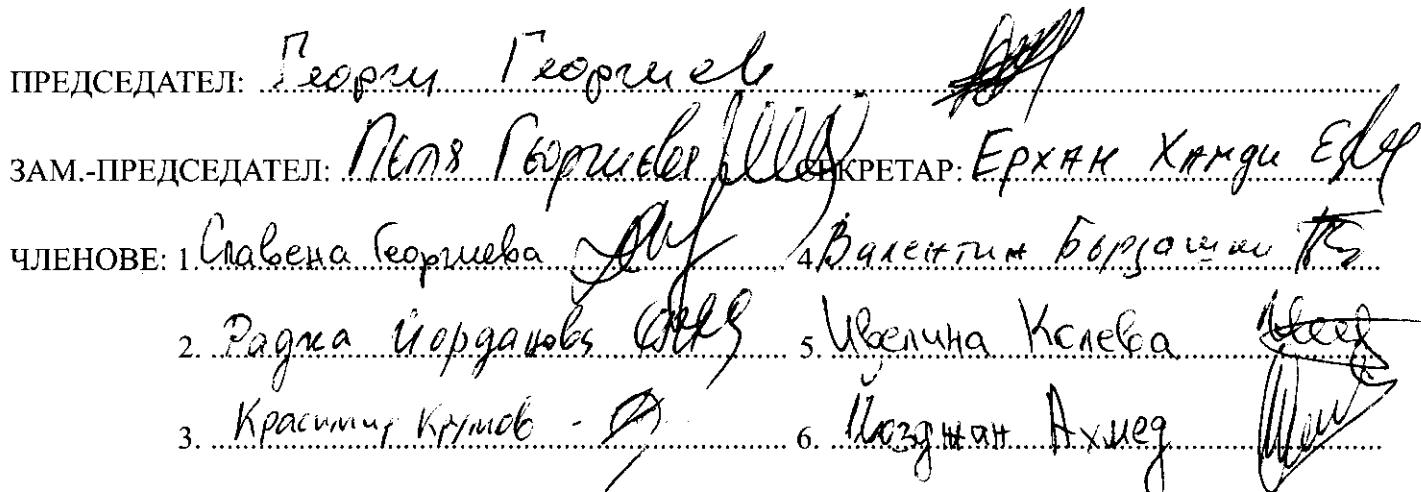 ПРЕДСЕДАТЕЛ: Георги Георгиев
ЗАМ.-ПРЕДСЕДАТЕЛ: Петя Георгиева СЕКРЕТАР: Ерхан Хамди
ЧЛЕНОВЕ: 1. Славена Георгиева 4. Валентин
2. Йорданова 5. Ивелина Колева
3. Красимир Крумов - 6. Йозджан Ахмед